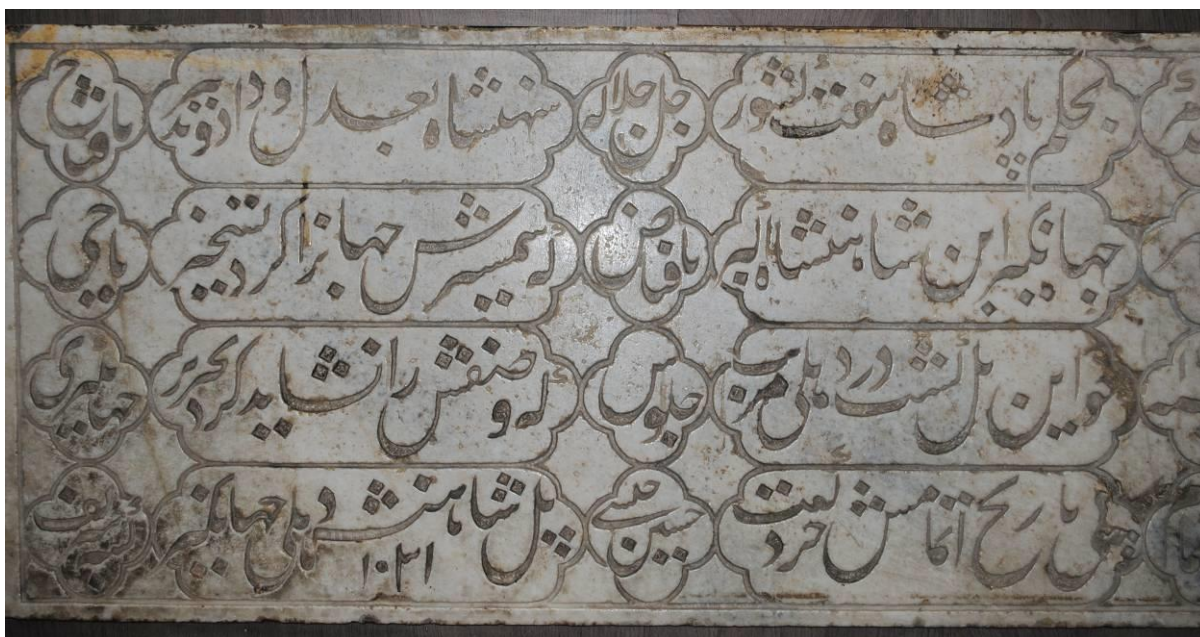 بحکم پادشاه هفت کشور جل جلاله شهنشاه بعدل و داد و تدبیر یا فتاح
جهانگیر ابن شاهنشاه اکبر یا فیاض که شمشیرش جهانرا کرد تسخیر یا حی
چو این پل گشت در دهلی مرتب جلوس که وصفش را نشاید کرد تحریر جهانگیری
پی تاریخ اتمامش خرد گفت پل شاهنشه دهلی جهانگیر ۱۰۳۱ کتبه شریف